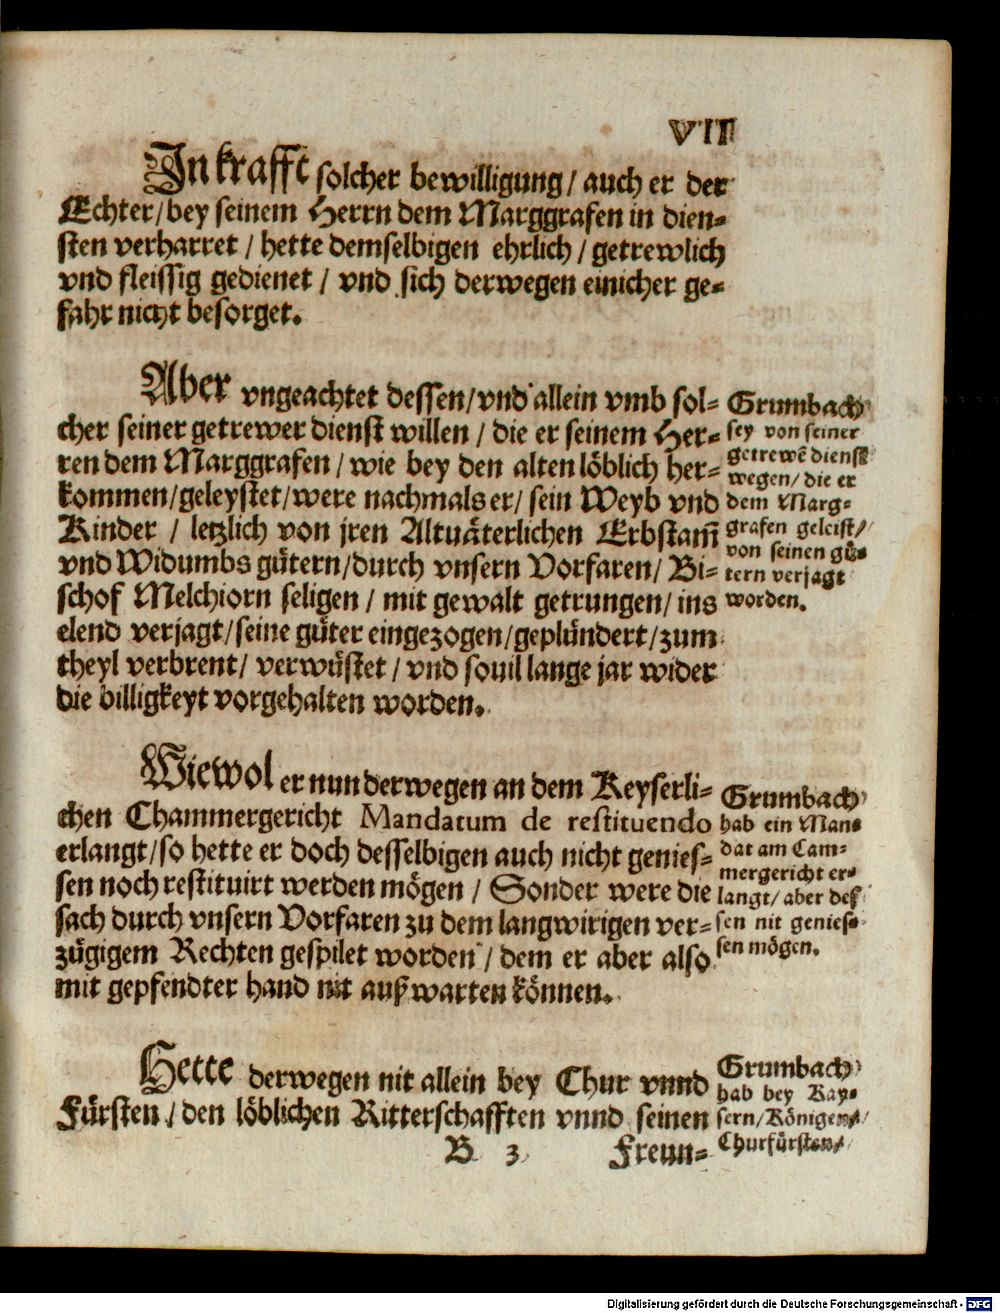 VII
In krafft solcher bewilligung/ auch er der
Echter/ bey seinem Herrn dem Marggrafen in dien-
sten verharret / hette demselbigen ehrlich / getrewlich
vnd fleissig gedienet / vnd sich derwegen einicher ge-
fahr nicht besorget.
Aber vngeachtet dessen/ vnd allein vmb sol-
cher seiner getrewer dienst willen / die er seinem Her-
ren dem Marggrafen / wie bey den alten löblich her-
kommen/ geleystet/ were nachmals er/ sein Weyb vnd
Kinder / letzlich von jren Altuäterlichen Erbstam̃
vnd Widumbs gütern/ durch vnsern Vorfaren/ Bi-
schof Melchiorn seligen / mit gewalt getrungen/ ins
elend verjagt/ seine güter eingezogen/ geplündert/ zum
theyl verbrent/ verwüstet / vnd souil lange jar wider
die billigkeyt vorgehalten worden.
Grumbach
sey von seiner
getrewẽ dienst
wegen/ die er
dem Marg-
grafen geleist/
von seinen gü-
tern verjagt
worden.
Wiewol er nun derwegen an dem Keyserli-
chen Chammergericht Mandatum de restituendo
erlangt/ so hette er doch desselbigen auch nicht genies-
sen noch restituirt werden mögen / Sonder were die
sach durch vnsern Vorfaren zu dem langwirigen ver-
zügigem Rechten gespilet worden / dem er aber also
mit gepfendter hand nit außwarten können.
Grumbach
hab ein Man-
dat am Cam-
mergericht er-
langt/ aber des
sen nit genies-
sen mögen.
Hette derwegen nit allein bey Chur vnnd
Fürsten / den löblichen Ritterschafften vnnd seinen
Grumbach
hab bey Kay-
sern/ Königen/
Churfürsten/
B 3
Freun-
Digitalisierung gefördert durch die Deutsche Forschungsgemeinschaft - DFG